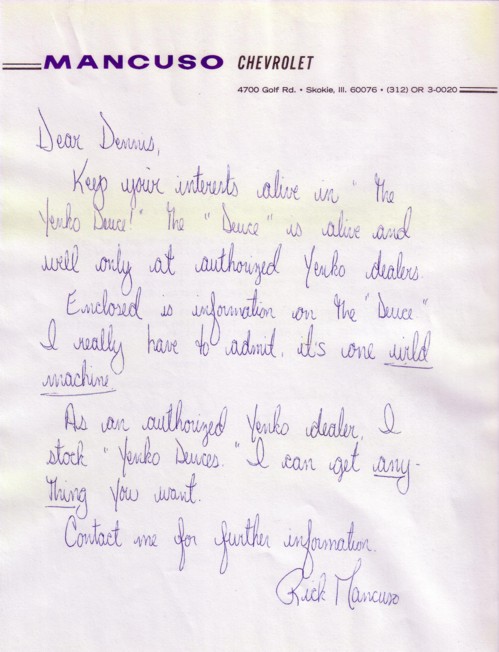 MANCUSO CHEVROLET
4700 Golf Rd. • Skokie, Ill. 60076 • (312) OR 3-0020
Dear Dennis,
Keep your interests alive in "The
Yenko Deuce!" The "Deuce" is alive and
well only at authorized Yenko dealers.
Enclosed is information on the "Deuce"
I really have to admit, it's one wild
machine.
As an authorized Yenko dealer, I
stock "Yenko Deuces." I can get any-
thing you want.
Contact me for further information.
Rick Mancuso